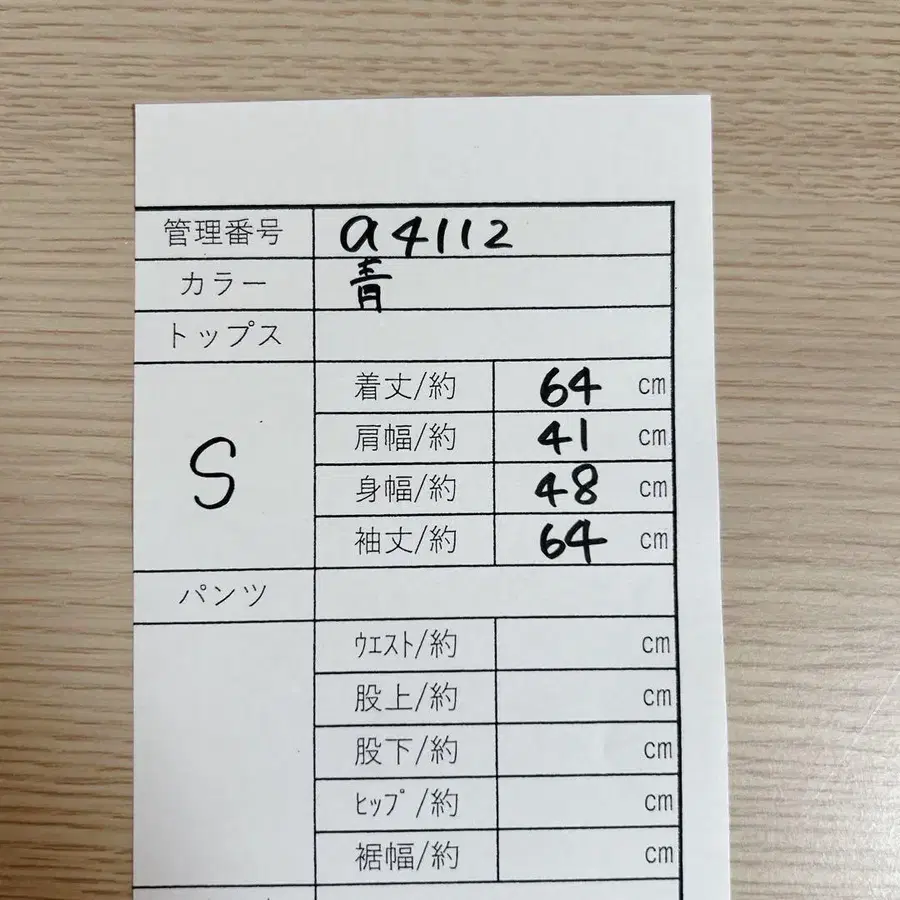 管理番号 a4112
カラー 青
トップス
S
着丈/約 64 cm
肩幅/約 41 cm
身幅/約 48 cm
袖丈/約 64 cm
パンツ
ｳｴｽﾄ/約 cm
股上/約 cm
股下/約 cm
ﾋｯﾌﾟ/約 cm
裾幅/約 cm